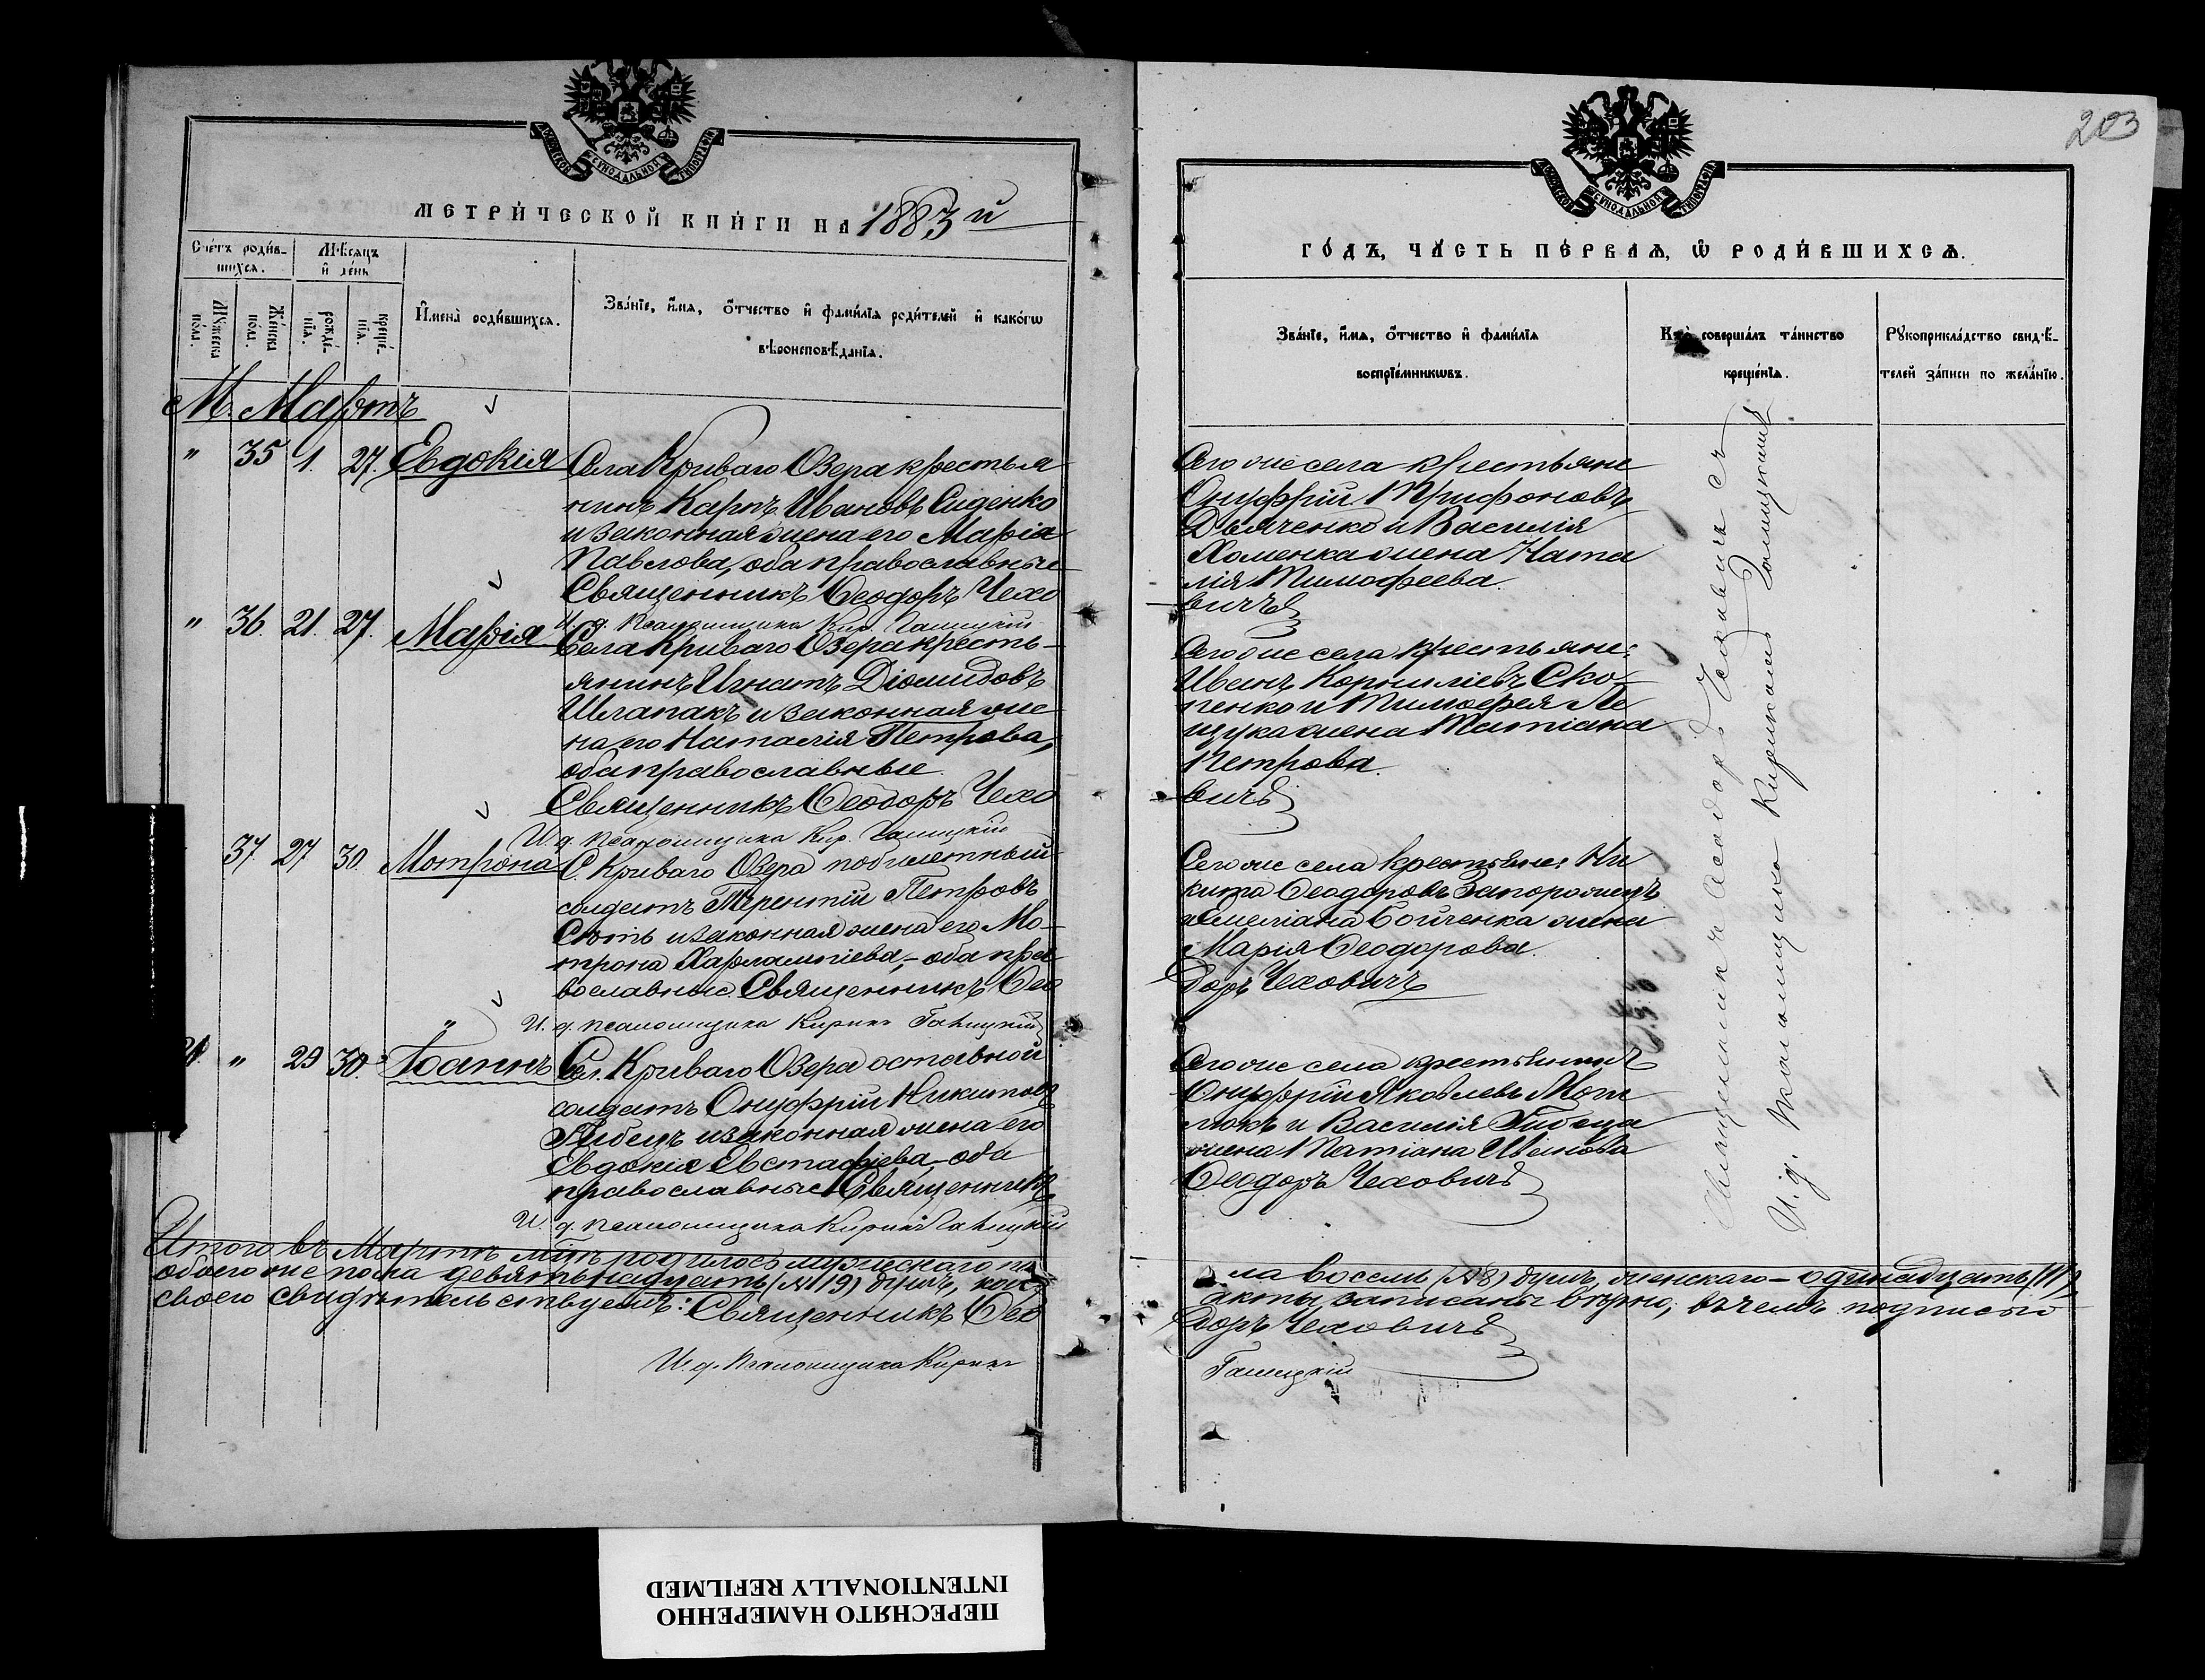 203
МЕТРИЧЕСКОЙ КНИГИ НА 1883 й
Счетъ родив-
шихся.
Мѣсяцъ
и день
Мужеска
пола.
Женска
пола.
рожде-
нія.
креще-
нія.
Имена родившихся.
Званіе, имя, отчество и фамилія родителей и какогѡ
вѣроисповѣданія.
М. Мартъ
" 35 1. 27. Евдокія Села Криваго Озера крестья
нинъ Карпъ Ивановъ Сиденко
и законная жена его Марія
Павлова, оба православные
Священникъ Ѳеодоръ Чехо
И. д. Псаломщика Кир. Галицкій
" 36. 21. 27. Марія Села Криваго Озера кресть-
янинъ Игнатъ Діомидовъ
Шлапакъ и законная же
на его Наталія Петрова,
оба православные.
Священникъ Ѳеодоръ Чехо
И. д. Псаломщика Кир. Галицкій
37. 27 30. Мотрона С. Криваго Озера побилетный
солдатъ Терентій Петровъ
Сють и законная жена его Мо-
трона Харлампіева,- оба пра
вославные. Священникъ Ѳео
И. д. псаломщика Кирикъ Галицкій
" 29 30. Іоаннъ Сел. Криваго Озера оставной
солдатъ Онуфрій Никитовъ
и законная жена его
Евдокія Евстафіева - оба
православные Священникъ
И. д. псаломщика Кирикъ Галицкій
Итого въ Мартѣ м-цѣ родилось мужескаго по
обоего же пола девятьнадцать (№ 19) душъ, кои
своего свидѣтельствуемъ: Священникъ Ѳео
И. д. Псаломщика Кирикъ
ГОДЪ, ЧАСТЬ ПЕРВАЯ, Ѡ РОДИВШИХСЯ.
Званіе, имя, отчество и фамилія
воспріемникѡвъ.
Кто совершалъ таинство
крещенія.
Рукоприкладство свидѣ-
телей записи по желанію.
Сего же села крестьяне
Онуфрій Трифоновъ
Дьяченко и Василія
Хоменка жена Ната
лія Тимофеева.
вичъ
Сего же села крестьяне:
Иванъ Корниліевъ Ско-
пенко и Тимофея Ле
щука жена Татіана
Петрова.
вичъ
Сего же села крестьяне: Ни
кита Ѳеодоровъ Запорожецъ
и Емеліана Бойченка жена
Марія Ѳеодорова.
доръ Чеховичъ
Сего же села крестьянинъ
Онуфрій Яковлевъ Мот
люкъ и Василія
жена Татіана Иванова
Ѳеодоръ Чеховичъ
Священникъ Ѳеодоръ Чеховичъ съ
И. д. Псаломщика Кирикомъ Галицкимъ
ла восемь (№ 8) душъ, женскаго - одинадцать (11),
акты записаны вѣрно, въ чемъ подписью
доръ Чеховичъ
Галицкій
ПЕРЕСНЯТО НАМЕРЕННО
INTENTIONALLY REFILMED